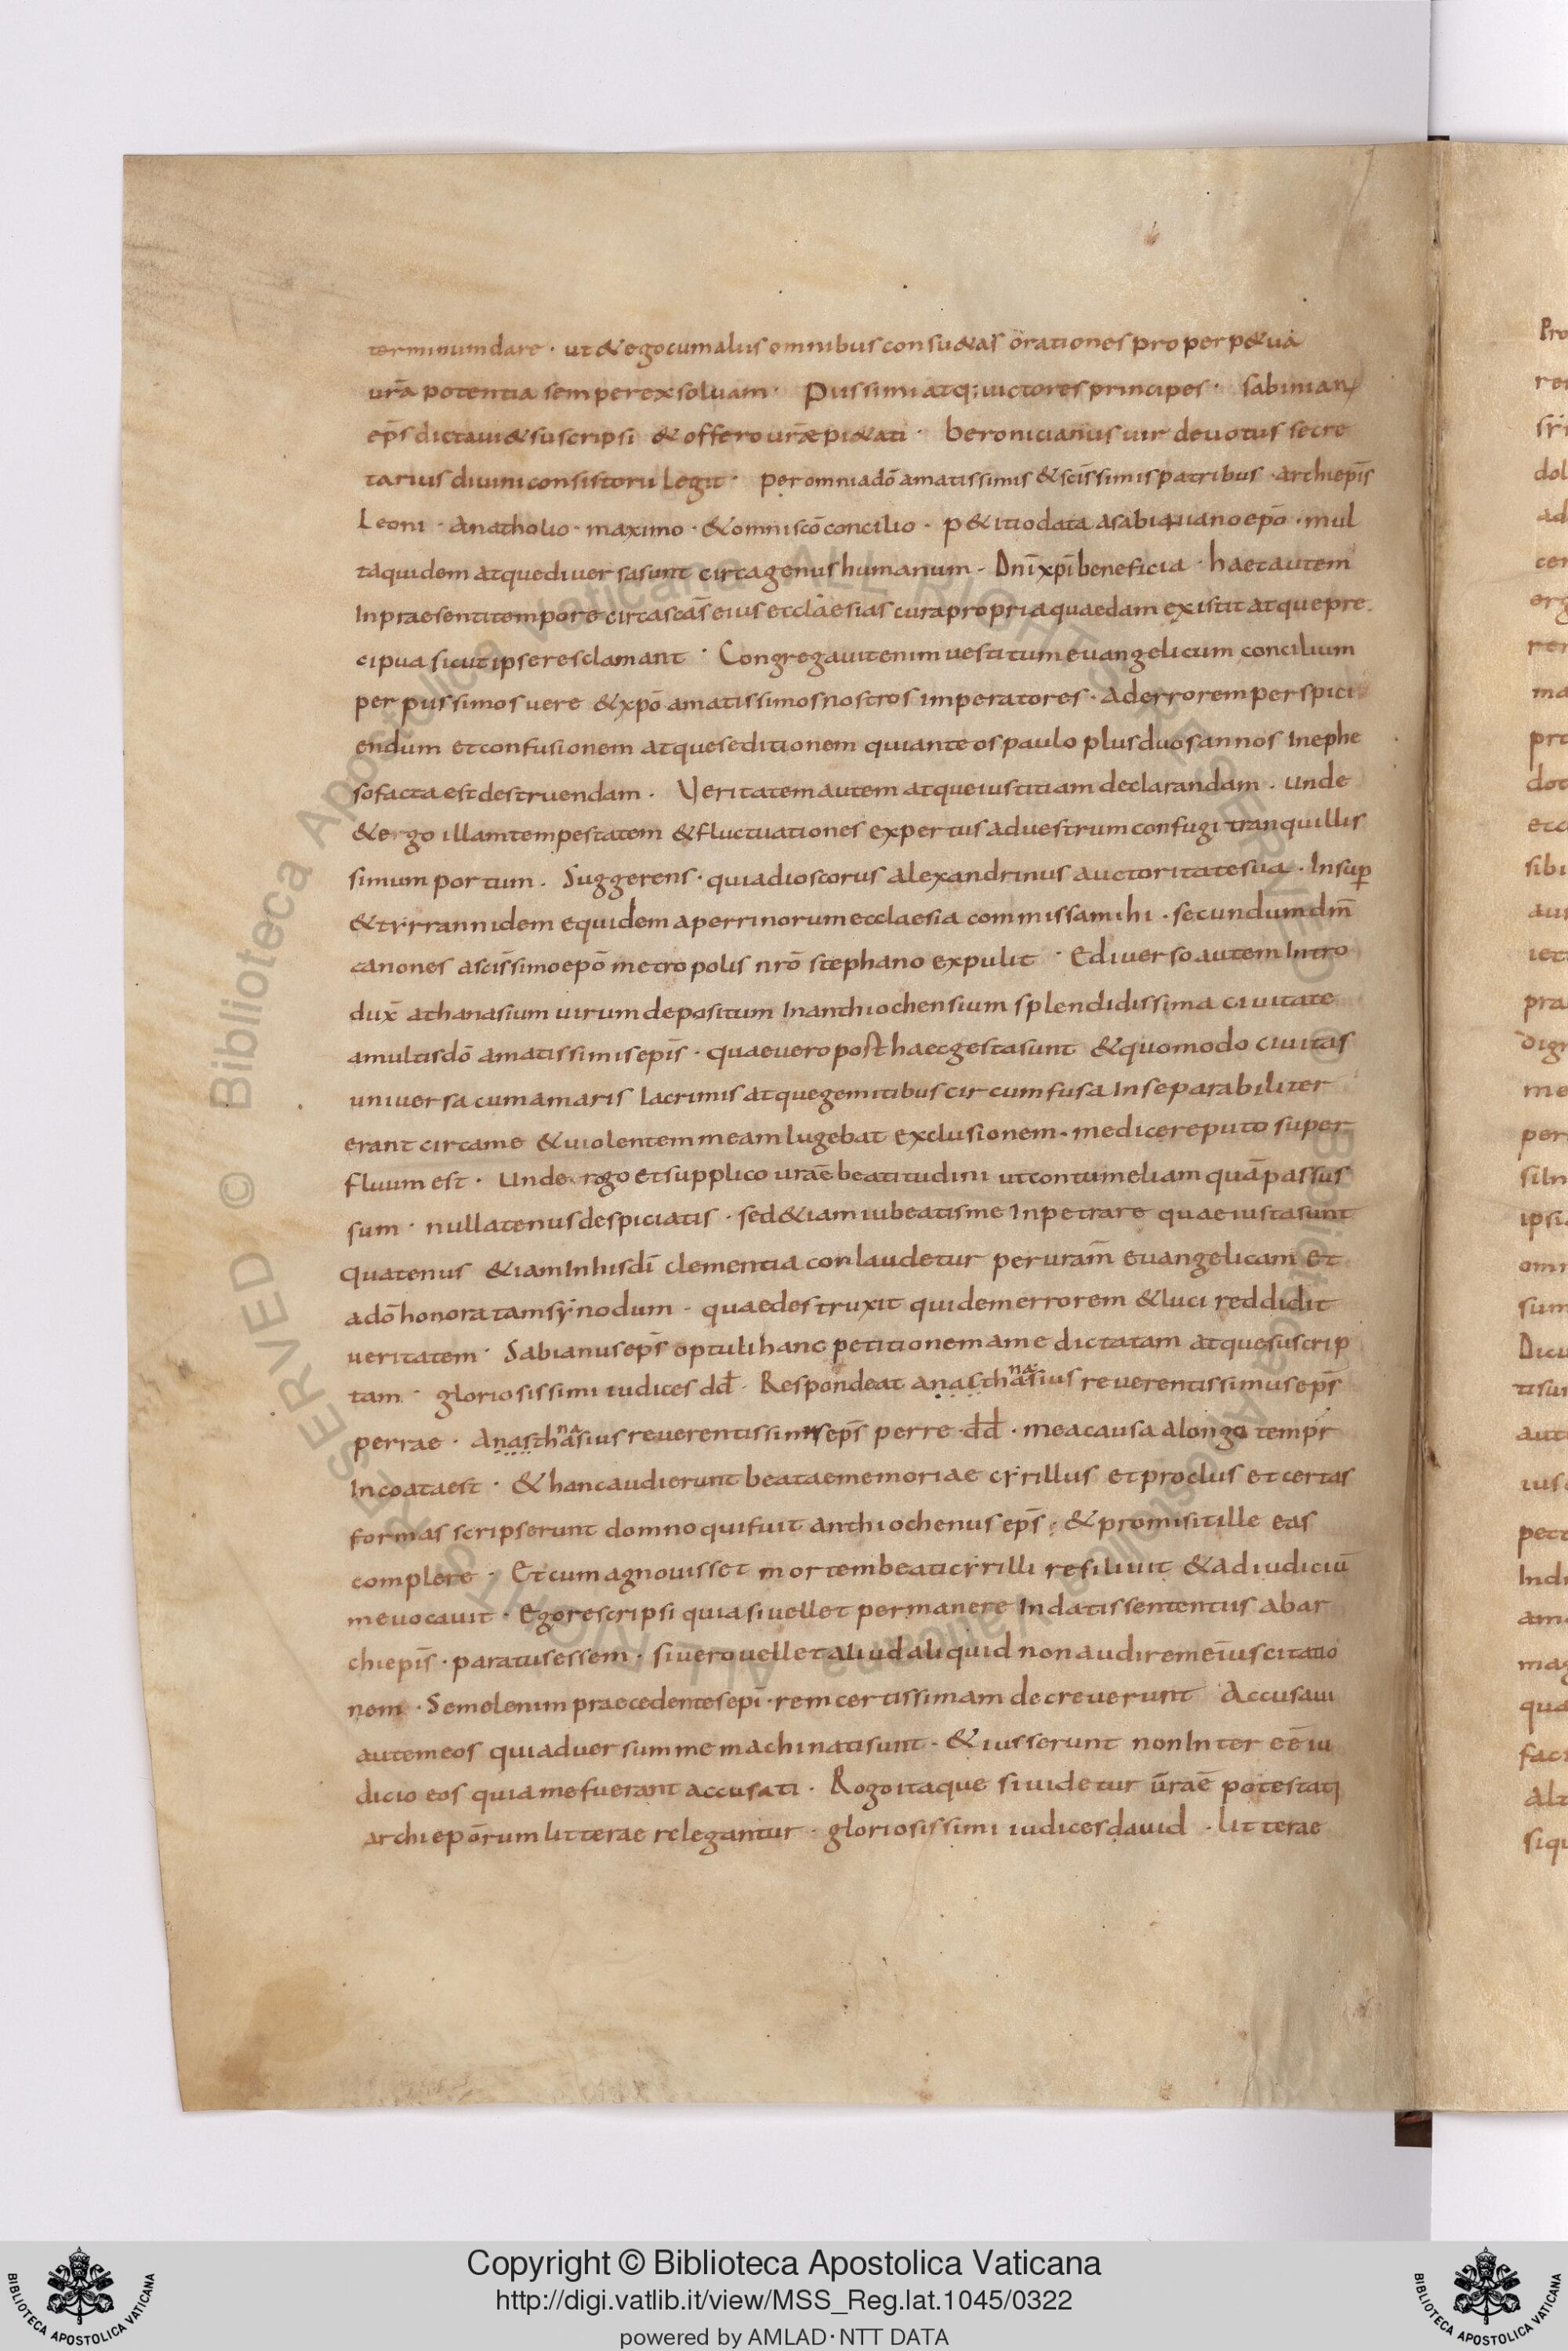 terminum dare · ut & ego cum aliis omnibus consu&as orationes pro perp&ua
urā potentia semper exsoluam · Piissimi atq; uictores principes · Sabinian
ep̄s dictaui & suscripsi & offero urǣ pi&ati · beronicianus uir deuotus secre
tarius diuini consistorii legit · per omnia dō amatissimis & sc̄issimis patribus · archiep̄is
Leoni · anatholio · maximo · & omni scō concilio · p&itio data a sabiniano epō · mul
ta quidem atque diuersa sunt circa genus humanum · Dnī xp̄i beneficia · haec autem
In praesenti tempore circa scās eius ecclaesias cura propria quaedam existit atque pre
cipua sicut ipse res clamant · Congregauit enim uestitum euangelicum concilium
per piissimos uere & xpō amatissimos nostros imperatores · Ad errorem perspici
endum et confusionem atque seditionem qui ante os paulo plus duos annos In ephe
so facta est destruendam · Veritatem autem atque iustitiam declarandam · unde
& ergo illam tempestatem & fluctuationes expertus ad uestrum confugi tranquillis
simum portum · Suggerens · quia dioscorus alexandrinus auctoritate sua · Insup̄
& tyrrannidem equidem a perrinorum ecclaesia commissa mihi · secundum dm̄
canones a sc̄issimo epō metropolis nrō stephano expulit · E diuerso autem Intro
dux̄ athanasium uirum depositum In anthiochensium splendidissima ciuitate
a multis dō amatissimis ep̄is · quae uero post haec gesta sunt & quomodo ciuitas
uniuersa cum amaris lacrimis atque gemitibus circumfusa Inseparabiliter
erant circa me & uiolentem meam lugebat exclusionem · me dicere puto super
fluum est · Unde rogo et supplico uraē beatitudini ut contumeliam quā passus
sum · nullatenus despiciatis · sed & iam iubeatis me Inpetrare quae iusta sunt
quatenus & iam In his dī clementia conlaudetur per uram̄ euangelicam et
a dō honoratam synodum · quae destruxit quidem errorem & luci reddidit
ueritatem · Sabianus ep̄s optuli hanc petitionem a me dictatam atque suscrip
tam · gloriosissimi iudices dd̄ · Respondeat anasthanasius reuerentissimus ep̄s
perrae · Anasthanasius reuerentissimus ep̄s perre · dd̄ · mea causa a longo tempr̄
Incoata est · & hanc audierunt beatae memoriae cyrillus et proclus et certas
formas scripserunt domno qui fuit anthiochenus ep̄s · & promisit ille eas
complere · Et cum agnouisset mortem beati cyrilli resiliuit & ad iudiciū
me uocauit · Ego rescripsi quia si uellet permanere In datis sententiis ab ar
chiep̄is · paratus essem · si uero uellet aliud aliquid non audire me īuscitatio
nem · Semel enim praecedentes ep̄i · rem certissimam decreuerunt Accusaui
autem eos qui aduersum me machinati sunt · & iusserunt non Inter eē iu
dicio eos qui a me fuerant accusati · Rogo itaque si uidetur ūraē potestati
archiepōrum litterae relegantur · gloriosissimi iudices dauid · litterae
Copyright © Biblioteca Apostolica Vaticana
http://digi.vatlib.it/view/MSS_Reg.lat.1045/0322
powered by AMLAD·NTT DATA